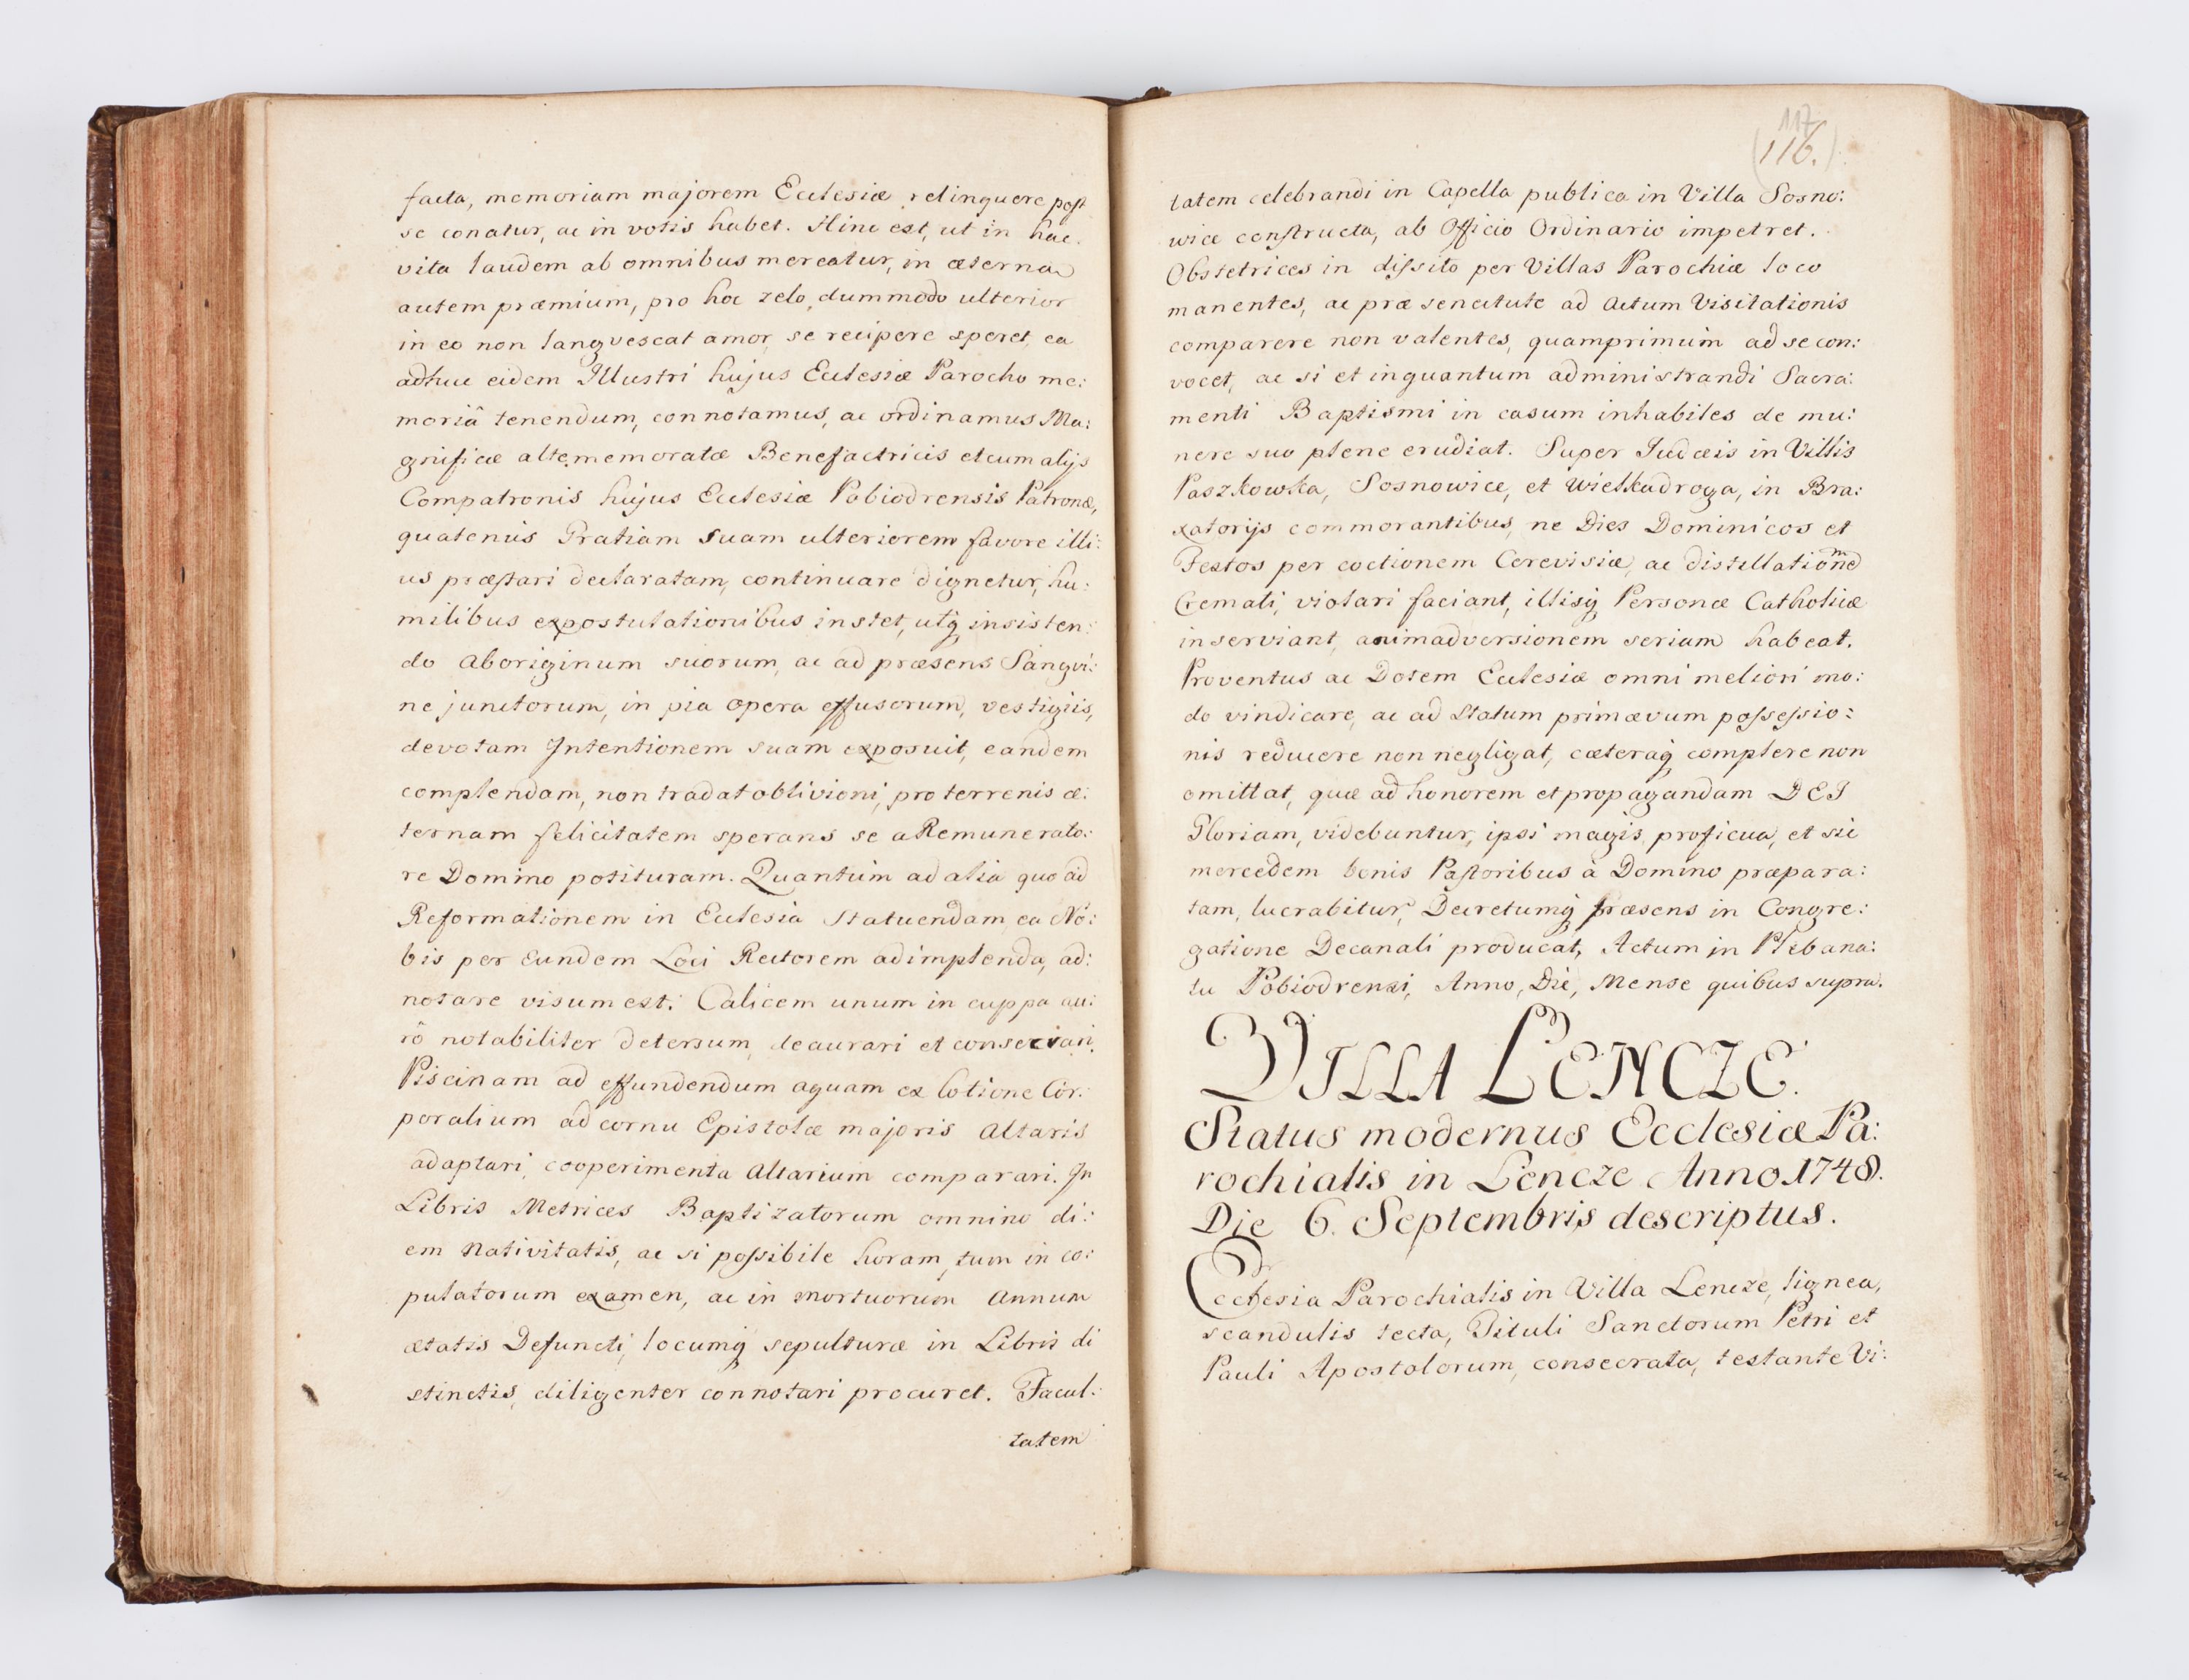 facta, memoriam majorem Ecclesiæ relinquere post
se conatur, ac in votis habet. Hinc est, ut in hac
vita laudem ab omnibus mereatur, in æterna
autem præmium, pro hoc zelo, dummodo ulterior
in eo non langvescat amor, se recipere speret, ea
adhuc eidem Illustri hujus Ecclesiæ Parocho me:
moriâ tenendum, connotamus, ac ordinamus Ma:
gnificæ altememoratæ Benefactricis et cum alijs
Compatronis hujus Ecclesiæ Pobiodrensis Patronæ,
quatenus Gratiam suam ulteriorem favore illi:
us præstari declaratam, continuare dignetur, hu:
milibus expostulationibus instet, utq insisten:
do Aboriginum suorum, ac ad præsens Sangvi:
ne junctorum, in pia opera effusorum, vestigiis,
devotam Intentionem suam exposuit, eandem
complendam, non tradat oblivioni, pro terrenis æ:
ternam felicitatem sperans se a Remunerato:
re Domino potituram. Quantum ad alia quo ad
Reformationem in Ecclesia statuendam, ea No:
bis per eundem Loci Rectorem adimplenda, ad:
notare visum est: Calicem unum in cuppa au:
rô notabiliter detersum, deaurari et consecrari.
Piscinam ad effundendum aquam ex lotione Cor:
poralium ad cornu Epistolæ majoris Altaris
adaptari, cooperimenta Altarium comparari. In
Libris Metrices Baptizatorum omnino di:
em Nativitatis, ac si possibile horam, tum in co:
pulatorum examen, ac in mortuorum Annum
ætatis Defuncti, locumq sepulturæ in Libris di
stinctis, diligenter connotari procuret. Facul:
tatem
117
(116.)
tatem celebrandi in Capella publica in Villa Sosno:
wice constructa, ab Officio Ordinario impetret.
Obstetrices in dissito per Villas Parochiæ loco
manentes, ac præ senectute ad Actum Visitationis
comparere non valentes, quamprimum ad se con:
vocet, ac si et inquantum administrandi Sacra:
menti Baptismi in casum inhabiles de mu:
nere suo plene erudiat. Super Judæis in Villis
Paszkowka, Sosnowice, et Wielkadroga, in Bra:
xatorijs commorantibus, ne Dies Dominicos et
Festos per coctionem Cerevisiæ, ac distillationem
Cremati, violari faciant, illisq Personæ Catholicæ
inserviant, animadversionem seriam habeat.
Proventus ac Dotem Ecclesiæ omni meliori mo:
do vindicare, ac ad statum primævum possessio:
nis reducere non negligat, cæteraq complere non
omittat, quæ ad honorem et propagandam DEI
Gloriam, videbuntur, ipsi magis proficua, et sic
mercedem bonis Pastoribus à Domino præpara:
tam, lucrabitur, Decretumq præsens in Congre:
gatione Decanali producat, Actum in Plebana:
tu Pobiodrensi, Anno, Die, Mense quibus supra.
VILLA LENCZE.
Status modernus Ecclesiæ Pa:
rochialis in Lencze Anno 1748.
Die 6. Septembris descriptus.
Ecclesia Parochialis in Villa Lencze, lignea,
scandulis tecta, Tituli Sanctorum Petri et
Pauli Apostolorum, consecrata, testante Vi: